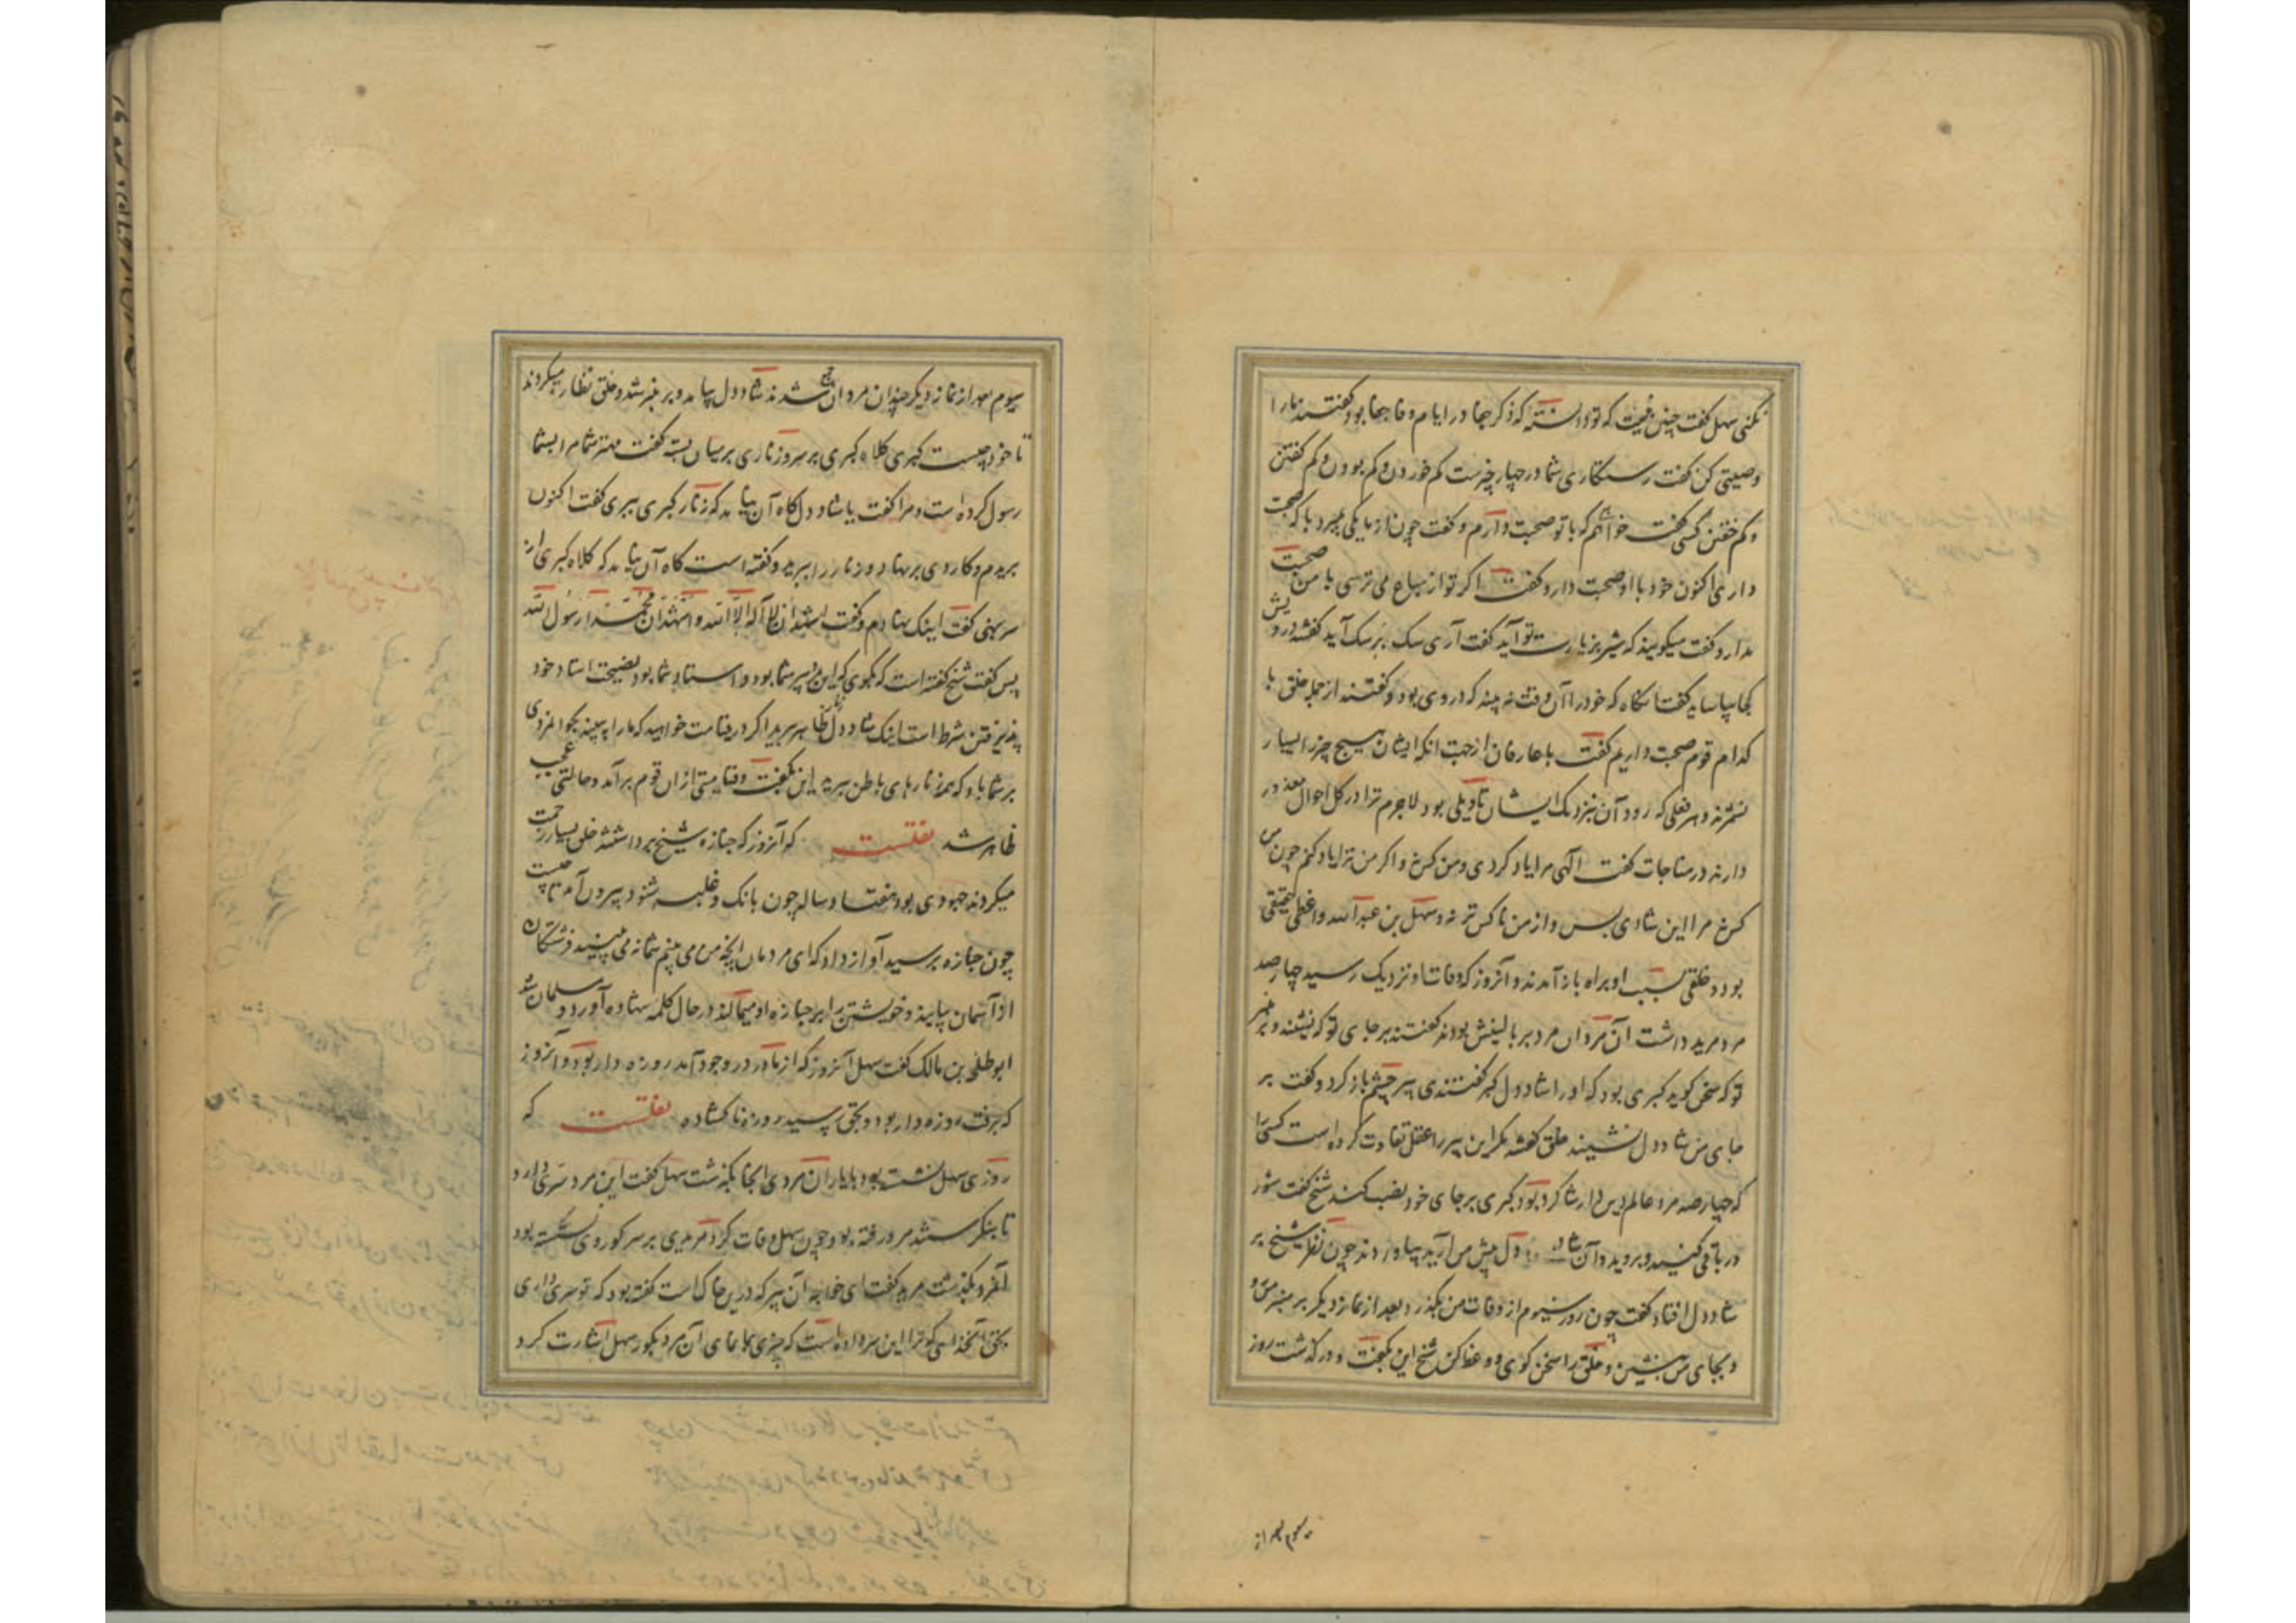 نکنی سهل گفت چنین نیست که تو دانسته که ذکر جفا در ایام وفا جفا بود گفتند ما را
وصیتی کن گفت رستگاری شما در چهار چیزست کم خوردن و کم بودن و کم گفتن
و کم خفتن کسی گفت خواهم که با تو صحبت دارم گفت چون از ما یکی بمیرد با که صحبت
داری اکنون خود با او صحبت دار و گفت اگر تو از سباع می ترسی با من صحبت
مدار و گفت میگویند که شیر بزیارت تو آید گفت آری سگ بر سگ آید گفتند درویش
کجا بیاساید گفت آنگاه که خود را آن وقت نه بیند که در وی بود و گفتند از جمله خلق با
کدام قوم صحبت داریم گفت با عارفان از جهت آنکه ایشان هیچ چیز را بسیار
نشمرند و هر فعلی که رود آن بنزدیک ایشان تاویلی بود لاجرم ترا در کل احوال معذور
دارند در مناجات گفت الهی مرا یاد کردی و من کس نه و اگر من ترا یاد کنم چون من
کس نه مرا این شادی بس و از من ناکس تر نه و سهل بن عبدالله واعظی حقیقی
بود و خلقی بسبب او براه باز آمدند و آنروز که وفات او نزدیک رسید چهارصد
مرد مرید داشت آن مردان مرد بر بالینش بودند گفتند بر جای تو که نشیند و بر منبر
تو که سخن گوید گبری بود که او را شاددل گبر گفتندی پیر چشم باز کرد و گفت بر
جای من شاددل نشیند خلق گفتند مگر این پیر را عقل تفاوت کرده است کسی را
که چهارصد مرد عالم دین دار شاگرد بود گبری بر جای خود نصب کند شیخ گفت شور
در باقی کنید و بروید و آن شاددل پیش من آرید بیاوردند چون نظر شیخ بر
شاددل افتاد گفت چون روز سیوم از وفات من بگذرد بعد از نماز دیگر بر منبر من رو
و بجای من بنشین و خلق را سخن گوی و وعظ کن شیخ این بگفت و درگذشت روز
سیوم بعد از
سیوم بعد از نماز دیگر چندان مردان جمع شدند شاددل بیامد و بر منبر شد و خلق نظاره میکردند
تا خود چیست گبری کلاه گبری بر سر و زناری بر میان بسته گفت مهتر شما مرا بشما
رسول کرده است و مرا گفت یا شاددل گاه آن بیامد که زنار گبری ببری گفت اکنون
بریدم و کاردی بر نهاد و زنار را ببرید و گفته است گاه آن بیامد که کلاه گبری از
سر بنهی گفت اینک نهادم و گفت اشهد ان لا اله الا الله و اشهد ان محمدا رسول الله
پس گفت شیخ گفته است که بگوی که این پیر شما بود و استاد شما بود نصیحت استاد خود
پذیرفتن شرط است اینک شاددل زنار ظاهر ببرید اگر در قیامت خواهید که ما را ببینید بجوانمردی
بر شما باد که همه زنارهای باطن ببرید این بگفت و قیامتی از آن قوم برآمد و حالتی عجب
ظاهر شد نقلست که آنروز که جنازه شیخ برداشتند خلق بسیار زحمت
میکردند جهودی بود هفتاد ساله چون بانگ و غلبه شنود بیرون آمد تا چیست
چون جنازه برسید آواز داد که ای مردمان آنچه من می بینم شما نمی بینید فرشتگان
از آسمان می آیند و خویشتن را بر جنازه او میمالند در حال کلمه شهاده آورد و مسلمان شد
ابوطلحه بن مالک گفت سهل آنروز که از مادر در وجود آمد روزه دار بود و آنروز
که برفت روزه دار بود و بحق رسید روزه ناگشاده نقلست که
روزی سهل نشسته بود با یاران مردی آنجا بگذشت سهل گفت این مرد سری دارد
تا بنگرستند مرد رفته بود چون سهل وفات کرد مریدی بر سر گور وی نشسته بود
آنمرد بگذشت مرید گفت ای خواجه آن پیر که درین خاک است گفته بود که تو سری داری
بحق آنخدائی که ترا این سر داده است که چیزی بما نمای آن مرد بگور سهل اشارت کرد